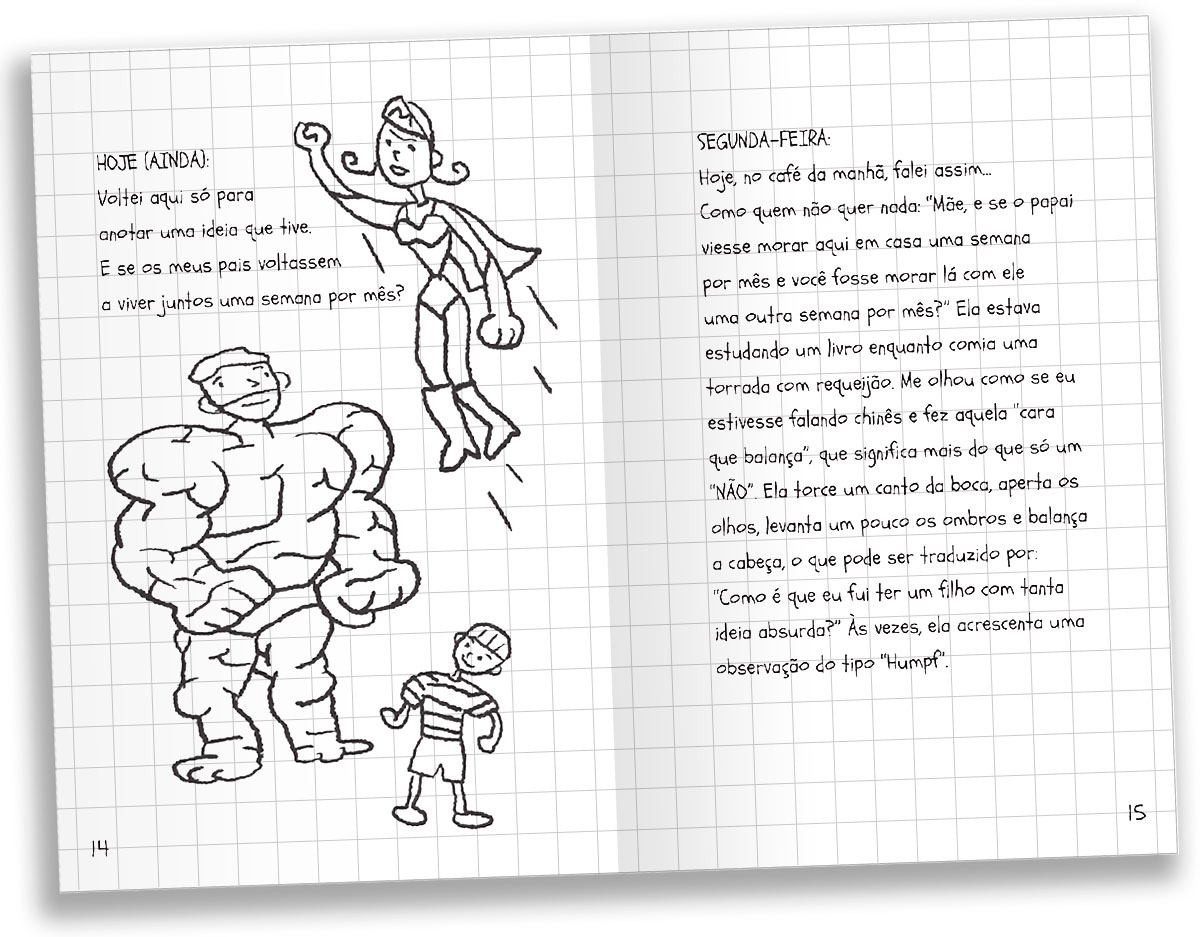 HOJE (AINDA):
Voltei aqui só para
anotar uma ideia que tive.
E se os meus pais voltassem
a viver juntos uma semana por mês?
14
SEGUNDA-FEIRA:
Hoje, no café da manhã, falei assim...
Como quem não quer nada: "Mãe, e se o papai
viesse morar aqui em casa uma semana
por mês e você fosse morar lá com ele
uma outra semana por mês?" Ela estava
estudando um livro enquanto comia uma
torrada com requeijão. Me olhou como se eu
estivesse falando chinês e fez aquela "cara
que balança", que significa mais do que só um
"NÃO". Ela torce um canto da boca, aperta os
olhos, levanta um pouco os ombros e balança
a cabeça, o que pode ser traduzido por:
"Como é que eu fui ter um filho com tanta
ideia absurda?" Às vezes, ela acrescenta uma
observação do tipo "Humpf".
15